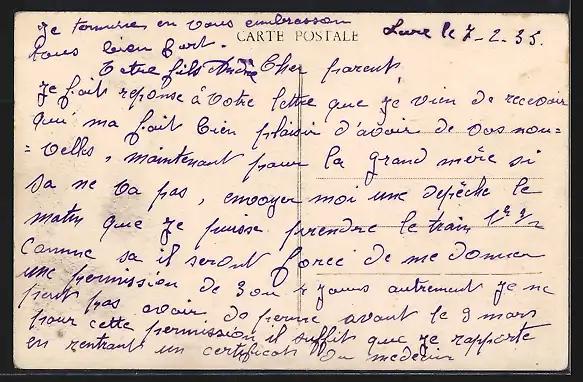 je termine en vous embrassan
tous bien fort.
CARTE POSTALE
Lure le 7-2-35.
Votre fils André
Cher parent,
Je fait réponse à votre lettre que je vien de recevoir
qui ma fait bien plaisir d'avoir de vos nou-
-velles, maintenant pour la grand mère si
sa ne va pas, envoyer moi une depêche le
matin que je puisse prendre le train
Comme sa il seront forcé de me donner
une permission de 3 ou 4 jours autrement je ne
peut pas avoir de perme avant le 9 mars
pour cette permission il suffit que je rapporte
en rentrant un certificat du medecin